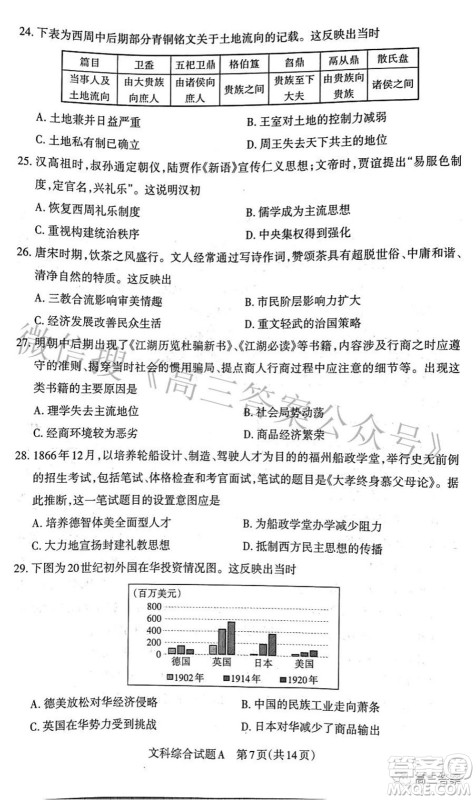 24. 下表为西周中后期部分青铜铭文关于土地流向的记载。这反映出当时
篇目 卫盉 五祀卫鼎 格伯簋 曶鼎 鬲从鼎 散氏盘
当事人及土地流向 由大贵族向庶人 由诸侯向庶人 贵族之间 贵族至下大夫 由贵族向贵族 诸侯之间
A. 土地兼并日益严重 B. 王室对土地的控制力减弱
C. 土地私有制已确立 D. 周王失去天下共主的地位
25. 汉高祖时，叔孙通定朝仪，陆贾作《新语》宣传仁义思想；文帝时，贾谊提出“易服色制
度，定官名，兴礼乐”。这说明汉初
A. 恢复西周礼乐制度 B. 儒学成为主流思想
C. 重视构建统治秩序 D. 中央集权得到强化
26. 唐宋时期，饮茶之风盛行。文人经常通过写诗作词，赞颂茶具有超脱世俗、中庸和谐、
清净自然的特质。这反映出
A. 三教合流影响审美情趣 B. 市民阶层影响力扩大
C. 经济发展改变社会风尚 D. 宽松文治的治国策略
27. 明朝中后期出现了《江湖历览杜骗新书》、《江湖必读》等书籍，内容除介绍商业行走时应
用的准则，揭穿当时社会的惯用骗术，还提点商人行商过程中所应注意的细节。出现这
一类书籍的主要原因是
A. 商人取得主流社会地位 B. 社会局势动荡
C. 经商环境较为恶劣 D. 商品经济繁荣
28. 1866年12月，以培养轮船设计、制造、驾驶人才为目的福州船政学堂，举行史无前例
的招生考试，包括笔试、体格检查和考官面试，笔试的题目是《大孝终身慕父母论》。据
此推断，这一笔试题目的设置意图应是
A. 培养德智体美全面发展的人才 B. 为船政学堂办学减少阻力
C. 大力地宣扬封建纲常礼教 D. 抵制西方民主思想的入侵
29. 下图为20世纪初外国在华投资情况图。这反映出当时
(百万美元)
800
600
400
200
0
德国 英国 日本 美国
1902年 1914年 1920年
A. 德美放松对华经济侵略 B. 中国的民族工业走向萧条
C. 英国在华势力受到挑战 D. 日本对华经济影响增强
文科综合试题A 第7页(共14页)
微信搜《高三答案公众号》
高三答案